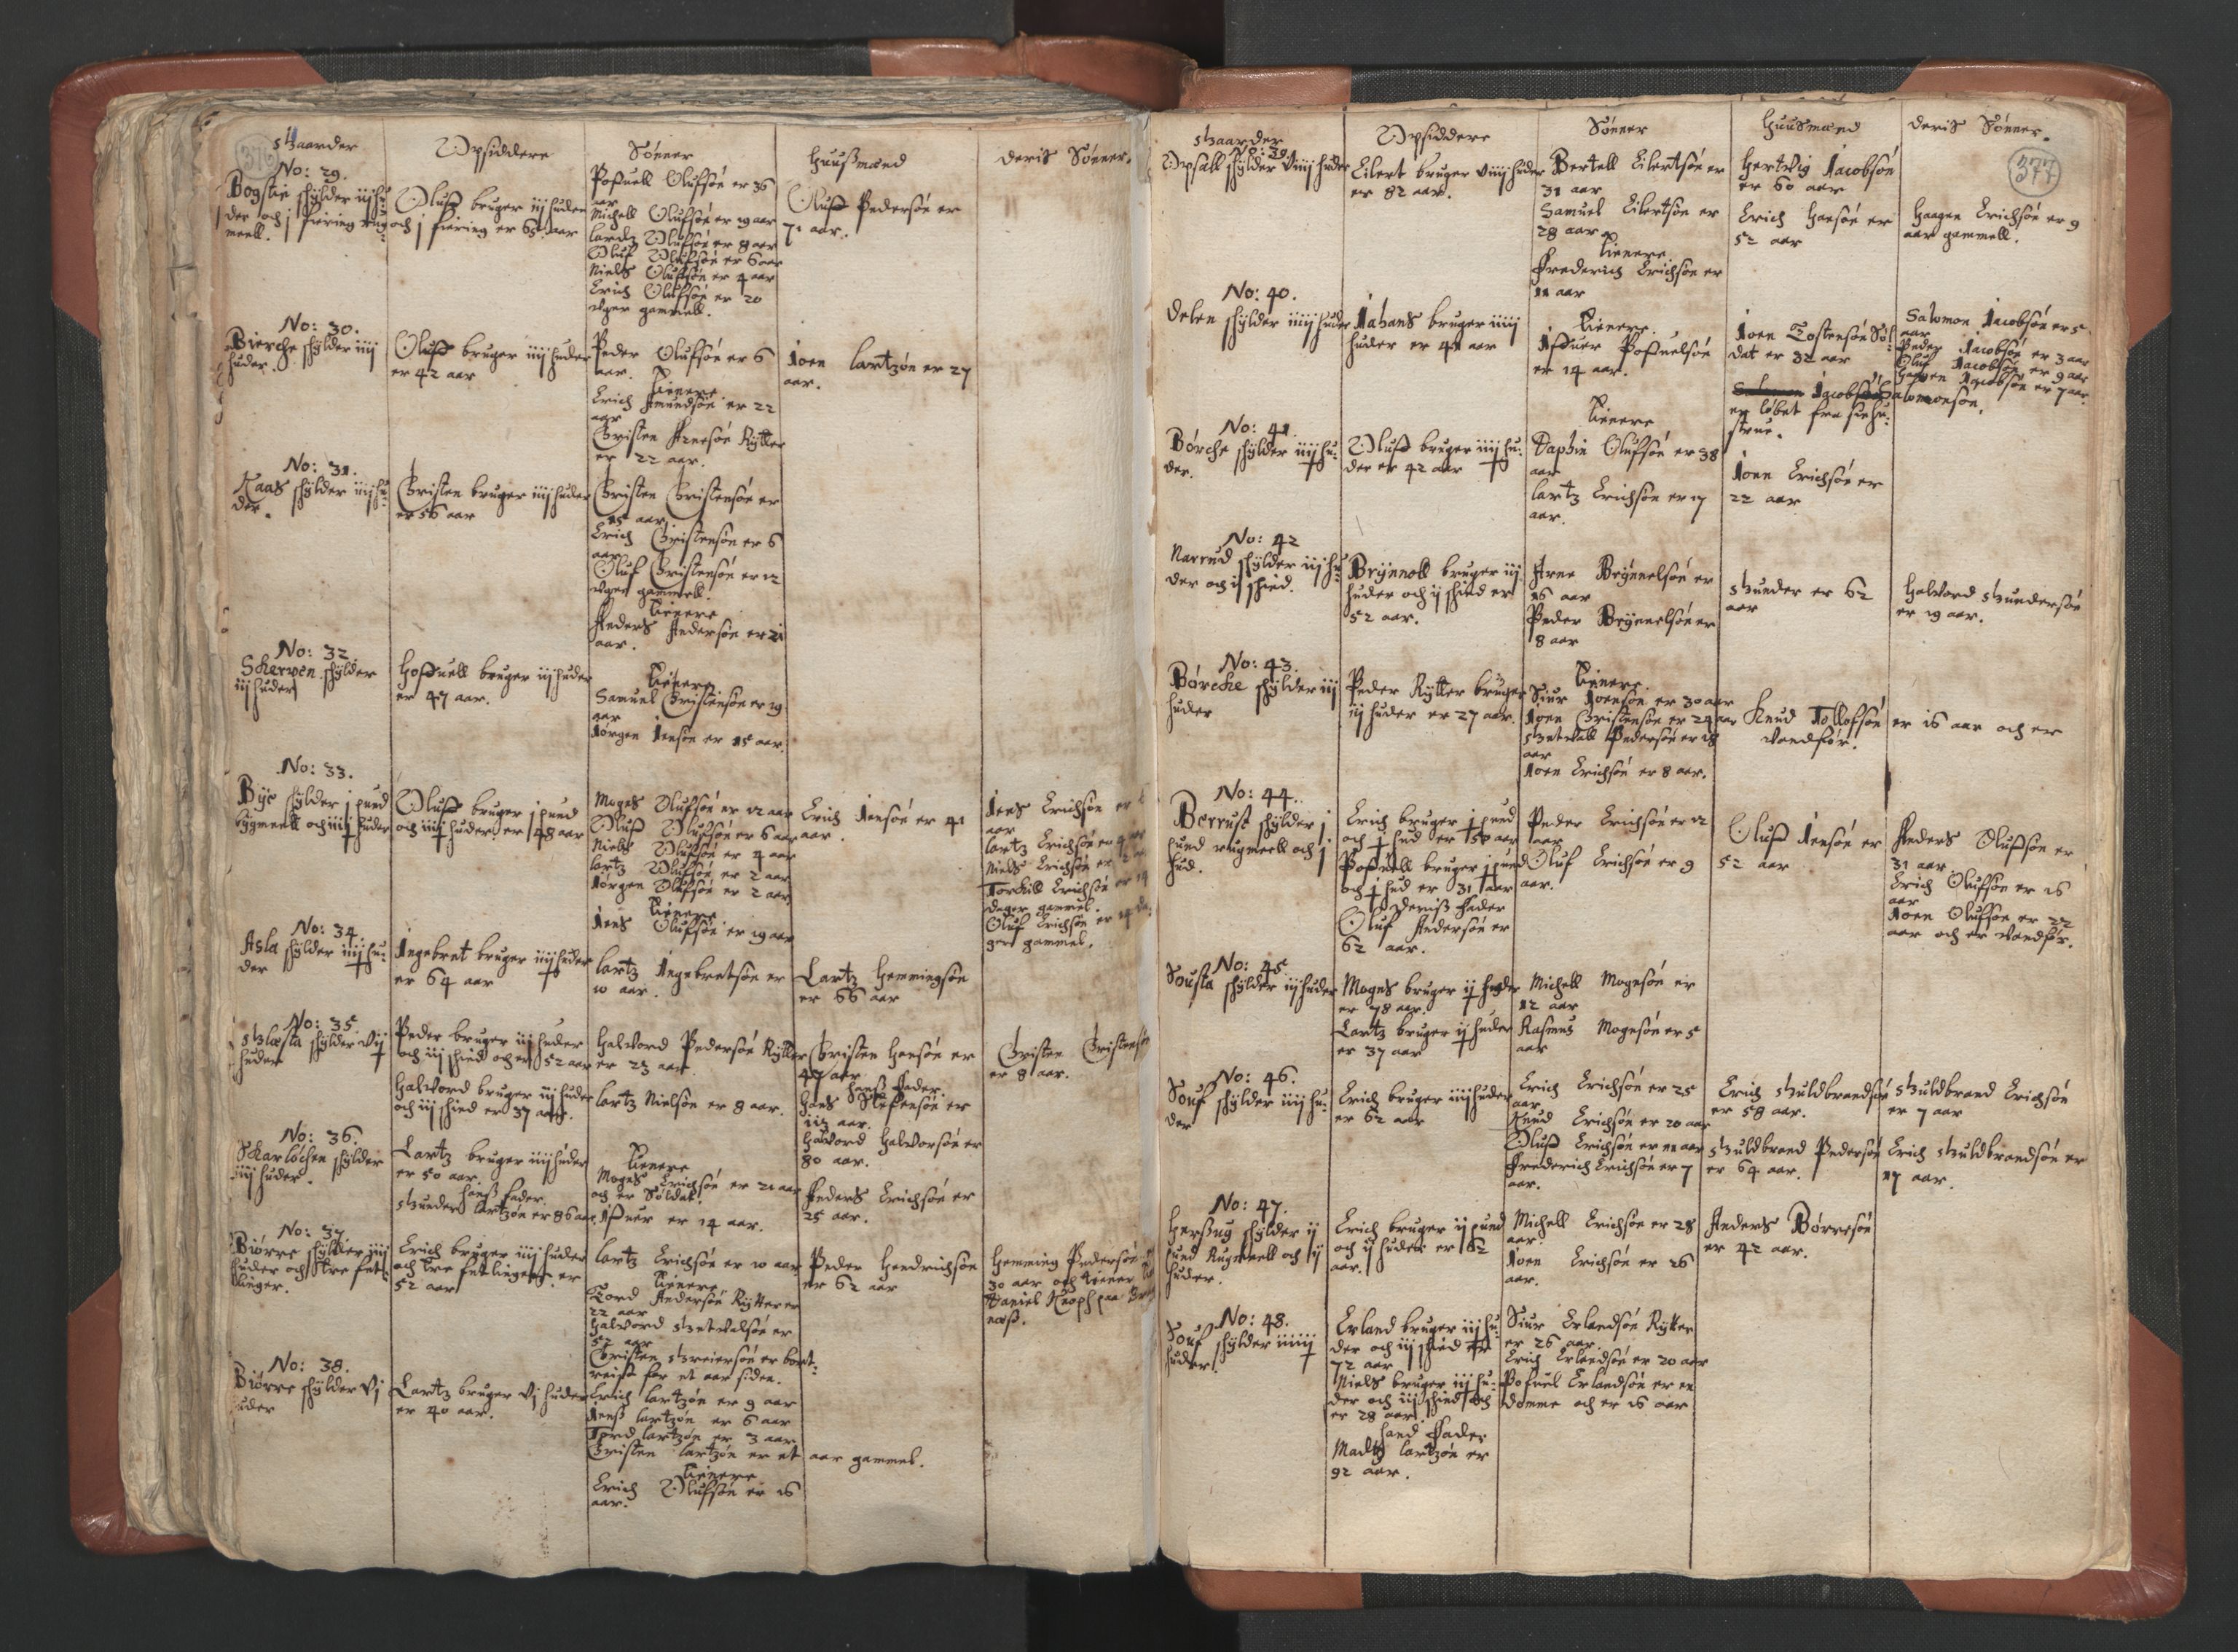 376
Gaarder
Opsiddere
Sönner
Huußmænd
Deris Sönner.
No: 29.
Bogstie skÿlder iij hu-
der och j fiering rug-
meell.
Oluff bruger iij huder
och j fiering er 65 aar
Pofuell Olufsöe er 36
aar
Michell Olufsöe er 19 aar
Lardtz Olufsöe er 8 aar
Oluf Olufsöe er 6 aar
Niels Olufsöe er 4 aar
Erich Olufsöe er 20
uger gammell.
Oluff Pedersöe er
71 aar.
No: 30.
Bierche skÿlder iiij
huder.
Oluff bruger iiij huder
er 42 aar
Peder Olufsöe er 6
aar.
Tienere
Erich Amundsöe er 22
aar
Christen Arnesöe Rÿtter
er 22 aar.
Joen Lartzön er 27
aar.
No: 31.
Kaas skÿlder iiij hu-
der.
Christen bruger iiij huder
er 56 aar
Christen Christensöe er
15 aar.
Erich Christensöe er 6
aar
Oluf Christensöe er 12
uger gammell.
Tienere
Anders Andersöe er 21
aar.
No: 32.
Skerven skÿlder
iij huder
Hofuell bruger iij huder
er 47 aar.
Tienere
Samuel Christensöe er 19
aar
Jörgen Jensöe er 15 aar.
No: 33.
Bÿe skÿlder j pund
bÿgmeell och iiij huder
Oluff bruger j pund
och iiij huder er 48 aar
Mogns Olufsöe er 12 aar
Oluff Olufsöe er 6 aar
Niels Olufsöe er 4 aar
Lartz Olufsöe er 2 aar
Jörgen Olufsöe er 2 aar
Tienere
Jens Olufsöe er 19 aar
Erich Jensöe er 41
aar.
Jens Erichsöe er
aar
Lartz Erichsöe er 4
Niels Erichsöe er 2
Torkild Erichsöe er 14
dager gammel.
Oluf Erichsöe er 14 da-
ger gammel.
No: 34.
Asla skÿlder iiij hu-
der
Ingebret bruger iiij huder
er 64 aar
Lartz Ingebretsöe er
10 aar.
Lartz Hemmingsöe
er 66 aar
No: 35.
Glæsta skÿlder vij
huder
Peder bruger iij huder
och iij skind och er 52 aar
Halvord bruger iij huder
och iij skind er 37 aar.
Halvord Pedersöe Rÿtter
er 23 aar.
Lartz Nielsöe er 8 aar.
Christen Hansöe er
47 aar
Hanß Fader.
Hans Steffensöe er
113 aar.
Halvord Halvorsöe er
80 aar.
Christen Christensöe
er 8 aar.
No: 36.
Skarlöchen skÿlder
iiij huder.
Lartz bruger iiij huder
er 50 aar.
Hanß Fader.
Gunder Lartzön er 86 aar.
Tienere
Mogns Erichsöe er 21 aar
och er Soldat.
Ifuer er 14 aar.
Anders Erichsöe er
25 aar.
No: 37.
Biörre skÿlder iiij
huder och tre fet-
linger.
Erich bruger iiij huder
och tre fetlinger er
52 aar
Lartz Erichsöe er 10 aar
Tienere
Tord Andersöe Rÿtter er
22 aar
Halvord Gietvalsöe er
52 aar
Christen Greiersöe er bort-
reist for et aar siden.
Peder Hendrichsöe
er 62 aar
Hemming Pedersöe
30 aar och tiener
Daniel Knoph paa Brag
næß.
No: 38.
Biörre skÿlder vj
huder
Lartz bruger vj huder
er 40 aar.
Erich Lartzön er 9 aar
Jenß Lartzön er 6 aar
Tord Lartzön er 3 aar
Christen Lartzön er et aar gammel.
Tienere
Erich Olufsöe er 16
aar.
377
Gaarder
Opsiddere
Sönner
Huusmænd
Deris Sönner.
No: 39.
Opsall skÿlder viiij huder
Eilert bruger viiij huder
er 82 aar.
Bertell Eilertsöe er
31 aar
Samuel Eilertsöe er
28 aar
Tienere
Frederich Erichsöe er
11 aar
Hertvig Jacobsöe
er 60 aar
Erich Hansöe er
52 aar
Haagen Erichsöe er 9
aar gammell.
No: 40.
Delen skÿlder iiij huder
Johans bruger iiij
huder er 41 aar
Tienere
Ifuer Pofuelsöe
er 14 aar.
Joen Tostensöe Sol-
dat er 32 aar
Jacob Salomonsön,
er löbet fra sin hu-
strue.
Salomon Jacobsöe er 5
aar
Peder Jacobsöe er 3 aar
Oluf Jacobsöe er 9 aar
Haagen Jacobsöe er 7 aar.
No: 41.
Börche skÿlder iiij hu-
der.
Oluff bruger iiij hu-
der er 42 aar
Tienere
Daphin Olufsöe er 38
aar
Lartz Erichsöe er 17
aar.
Joen Erichsöe er
22 aar
No: 42
Narrud skÿlder iij hu-
der och ij skind.
Brÿnnoll bruger iij
huder och ij skind er
52 aar.
Arne Brÿnnelsöe er
16 aar
Peder Brÿnnelsöe er
8 aar
Gunder er 62
aar
Halvord Gundersöe
er 19 aar.
No: 43.
Börche skÿlder iij
huder
Peder Rÿtter bruger
iij huder er 27 aar.
Tienere
Siur Joensöe er 30 aar
Joen Christensöe er 24 aar
Gietvell Pedersöe er 18
aar
Joen Erichsöe er 8 aar.
Knud Tollofsöe er 16 aar och er
vandför.
No: 44.
Berrust skÿlder j
pund rugmeell och j
hud.
Erich bruger j pund
och j hud er 50 aar
Pofuell bruger j pund
och j hud er 31 aar
Deniß Fader
Oluf Andersöe er
62 aar.
Peder Erichsöe er 12
aar
Oluf Erichsöe er 9
aar.
Oluff Jensöe er
52 aar
Anders Olufsöe er
31 aar.
Erich Olufsöe er 16
aar
Joen Olufsöe er 22
aar och er vandför.
No: 45.
Sousta skÿlder iij huder
Mogns bruger ij huder
er 78 aar.
Lartz bruger ij huder
er 37 aar
Michell Mognsöe er
12 aar
Rasmus Mognsöe er 5
aar
No: 46.
Souf skÿlder iiij hu-
der
Erich bruger iiij huder
er 62 aar
Erich Erichsöe er 25
aar
Knud Erichsöe er 20 aar
Oluff Erichsöe er 11 aar
Friderich Erichsöe er 7
aar.
Erich Guldbrandsöe
er 58 aar.
Guldbrand Pedersöe
er 64 aar.
Guldbrand Erichsöe
er 7 aar
Erich Guldbrandsöe er
17 aar.
No: 47.
Herßug skÿlder ij
pund Rugmeell och ij
huder.
Erich bruger ij pund
och ij huder er 62
aar.
Michell Erichsöe er 28
aar.
Joen Erichsöe er 26
aar.
Anders Börresöe
er 42 aar.
No: 48.
Souf skÿlder iiiij
huder.
Erland bruger iij hu-
der och iij skind er
72 aar
Niels bruger iij hu-
der och iij skind och
er 28 aar
Hand Fader
Madtz Lartzön er
92 aar.
Siur Erlandsöe Rÿtter
er 26 aar.
Erich Erlandsöe er 20 aar
Pofuel Erlandsöe er en
Domme och er 16 aar